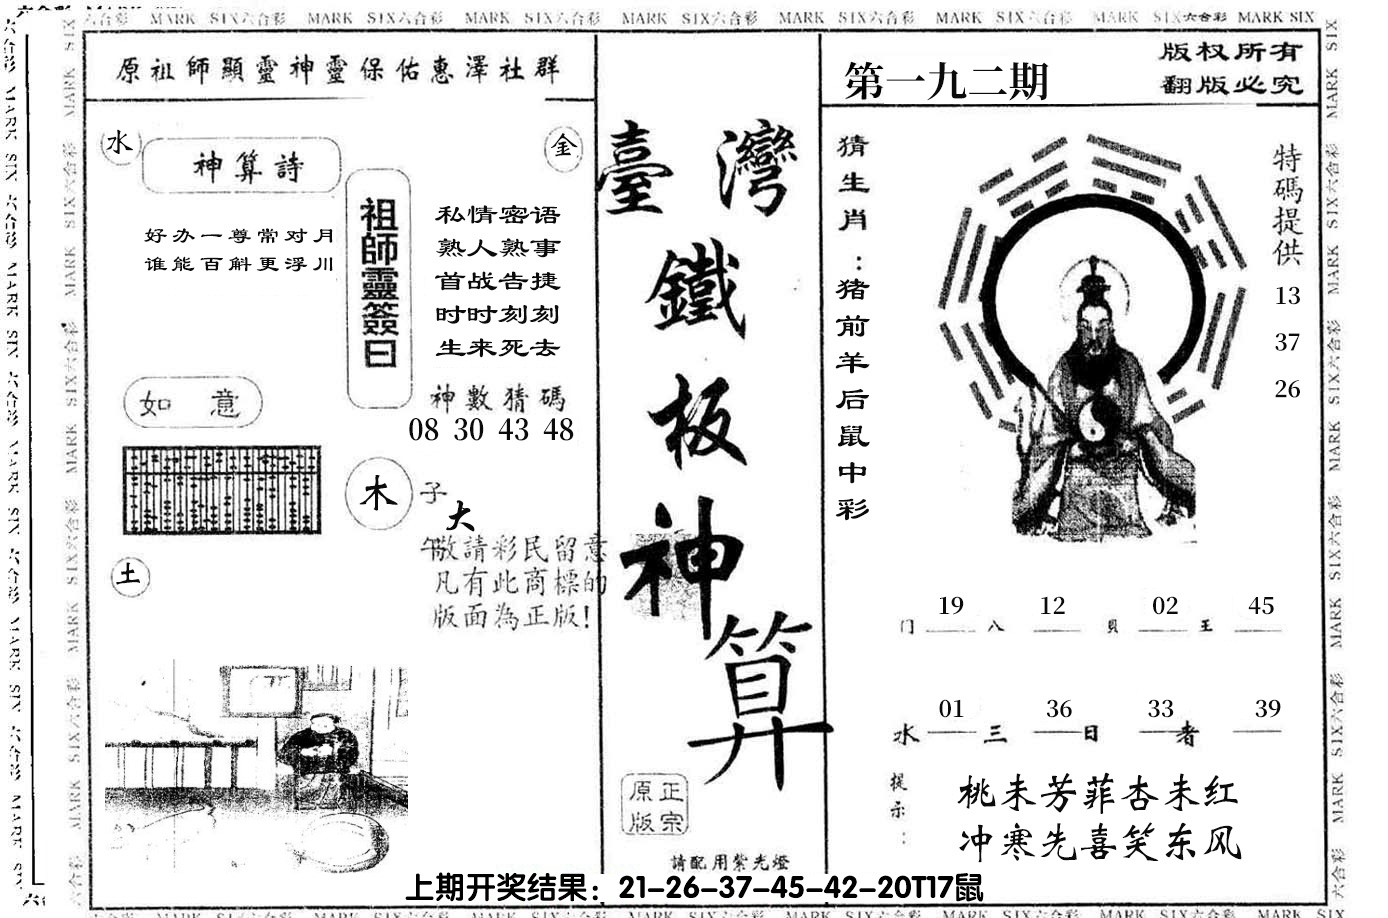 六合彩 MARK SIX六合彩 MARK SIX六合彩 MARK SIX六合彩 MARK SIX六合彩 MARK SIX六合彩 MARK SIX六合彩 MARK SIX六合彩 MARK SIX
原祖師顯靈神靈保佑惠澤社群
水
神算詩
金
好办一尊常对月
谁能百斛更浮川
祖師靈簽曰
私情密语
熟人熟事
首战告捷
时时刻刻
生来死去
神數猜碼
08 30 43 48
如意
木
子
大
午
敬請彩民留意
凡有此商標的
版面為正版!
土
臺灣
鐵
板
神
算
正宗
原版
請配用紫光燈
第一九二期
版权所有
翻版必究
猜生肖:猪前羊后鼠中彩
特碼提供
13
37
26
19 12 02 45
门 八 貝 王
01 36 33 39
水 三 日 者
提示:
桃未芳菲杏未红
冲寒先喜笑东风
上期开奖结果：21-26-37-45-42-20T17鼠